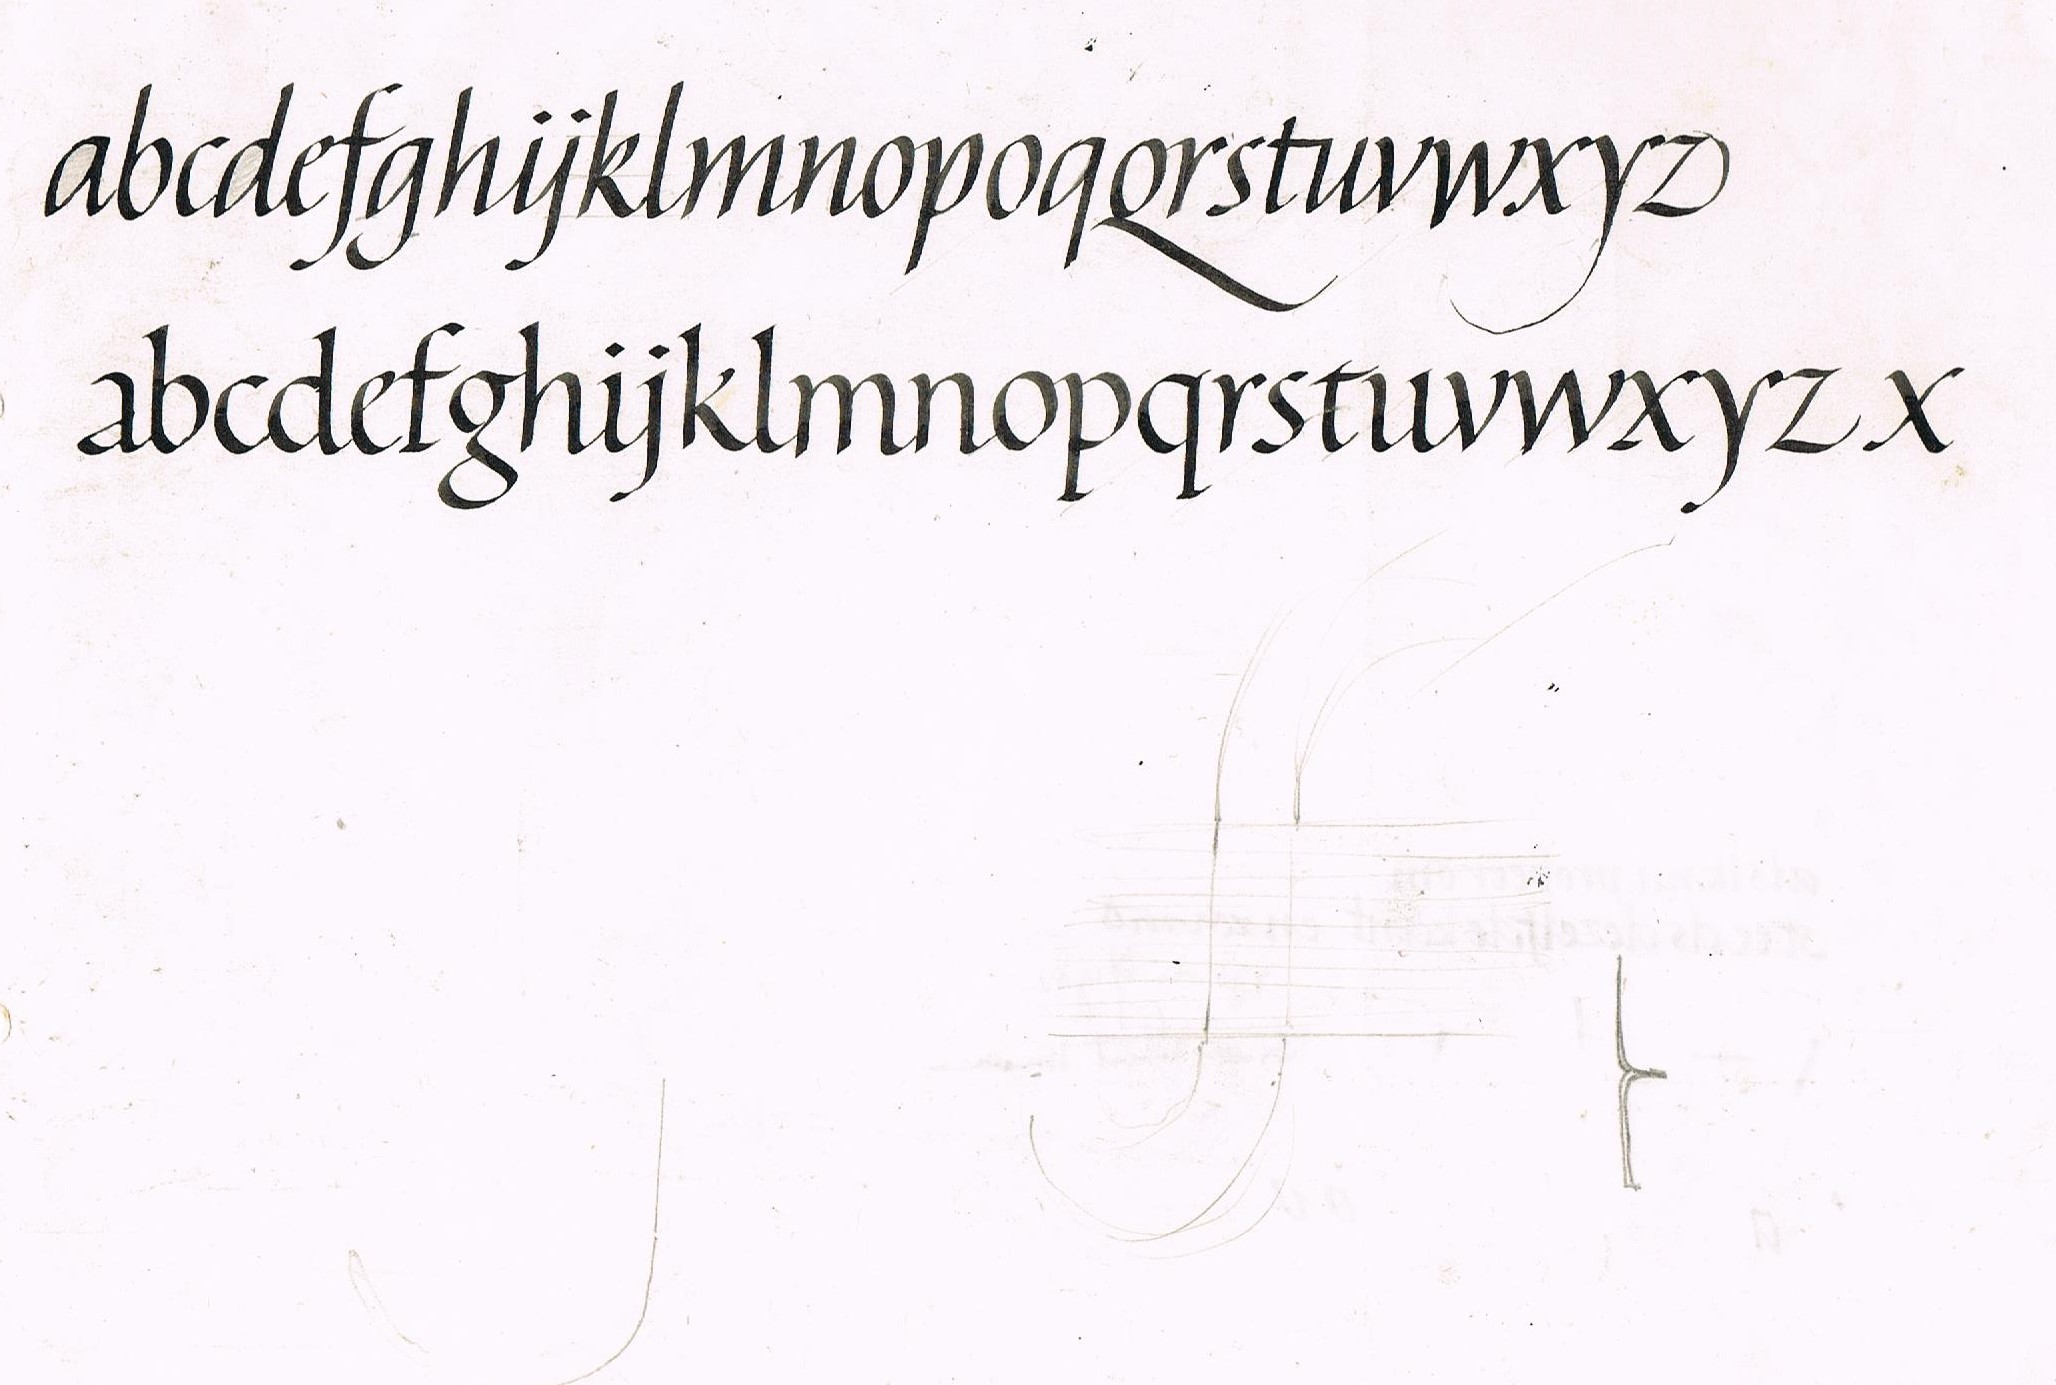 abcdefghijklmnopoqqrstuvwxyz
abcdefghijklmnopqrstuvwxyz x